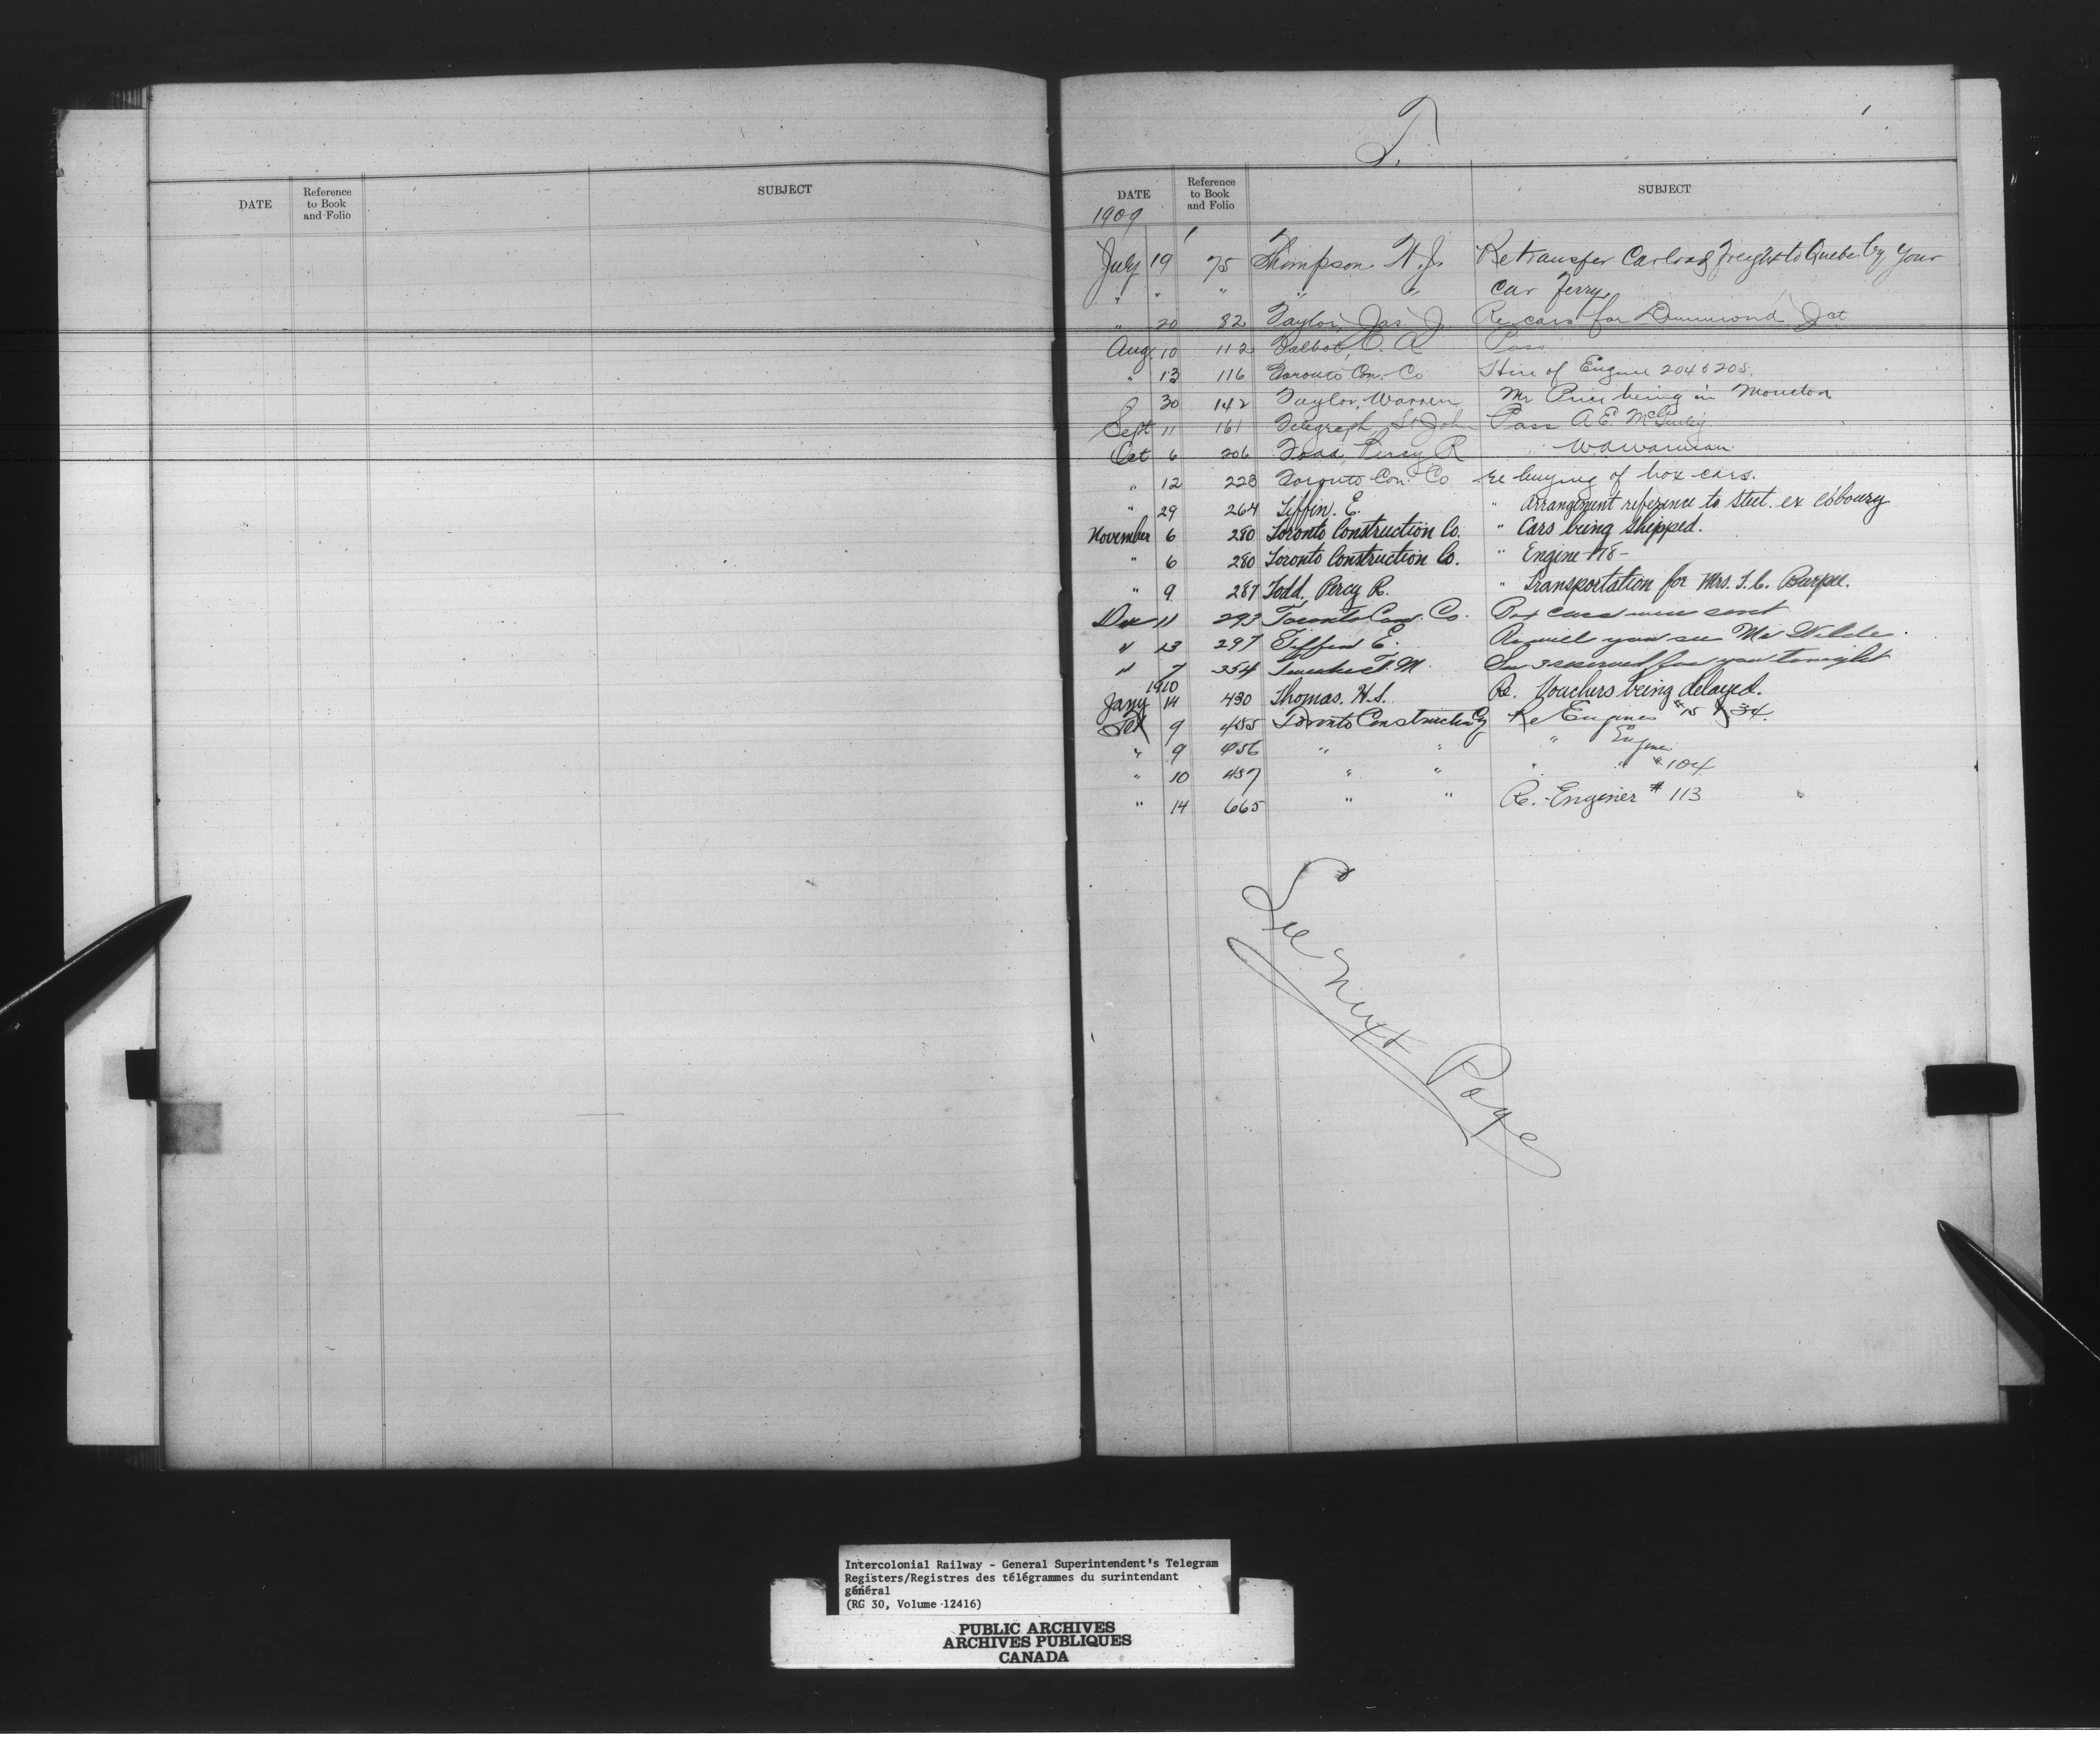 DATE Reference to Book and Folio SUBJECT
T.
DATE Reference to Book and Folio SUBJECT
1909
July 19 75 Thompson W. J. Re transfer Carload Freight to Quebec by your
" " " " " Car Ferry
" 20 82 Taylor, Jas. J. Re cars for Drummond Jct
Aug. 10 112 Talbot, O. A. Pass
" 13 116 Toronto Con. Co Hire of Engine 204 & 205.
" 30 142 Taylor, Warren Mr Price being in Moncton
Sept 11 161 Telegraph, St John Pass A E.
Oct 6 206 Todd, Percy R " W
" 12 223 Toronto Con. Co re buying of box cars.
" 29 264 Tiffin. E. " Arrangement reference to steel. ex
November 6 280 Toronto Construction Co. " Cars being shipped.
" 6 280 Toronto Construction Co. " Engine 178-
" 9 287 Todd, Percy R. " Transportation for Mrs. T. C. Burpee.
Dec 11 293 Toronto Con. Co. Box cars were sent
" 13 297 Tiffin E. Re will you see Mr
" 7 354 T. M. reserved for you tonight
1910
Jany 14 430 Thomas. H. S. Re. Vouchers being delayed.
Feb 9 455 Toronto Construction Co Re Engines #15 & 34.
" 9 456 " " " Engine
" 10 457 " " " " # 104
" 14 665 " " Re. Engines # 113
See Next Page
Intercolonial Railway - General Superintendent's Telegram
Registers/Registres des télégrammes du surintendant
général
(RG 30, Volume 12416)
PUBLIC ARCHIVES
ARCHIVES PUBLIQUES
CANADA